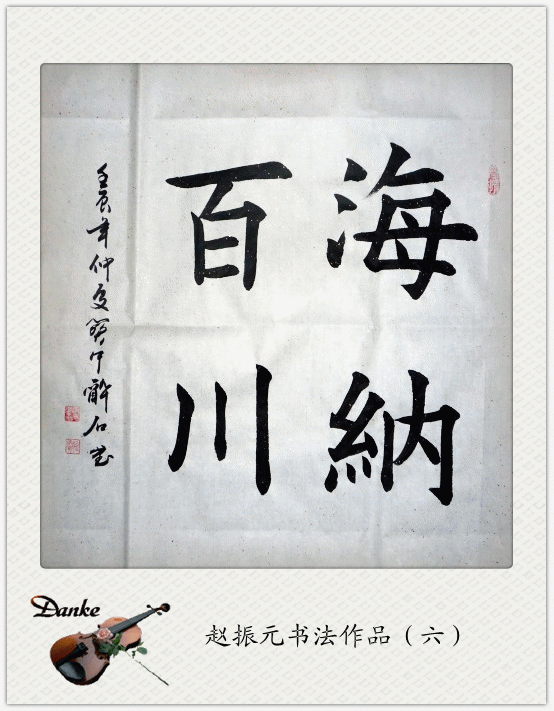 海納
百川
壬辰年仲夏
醉石
Danke
赵振元书法作品（六）